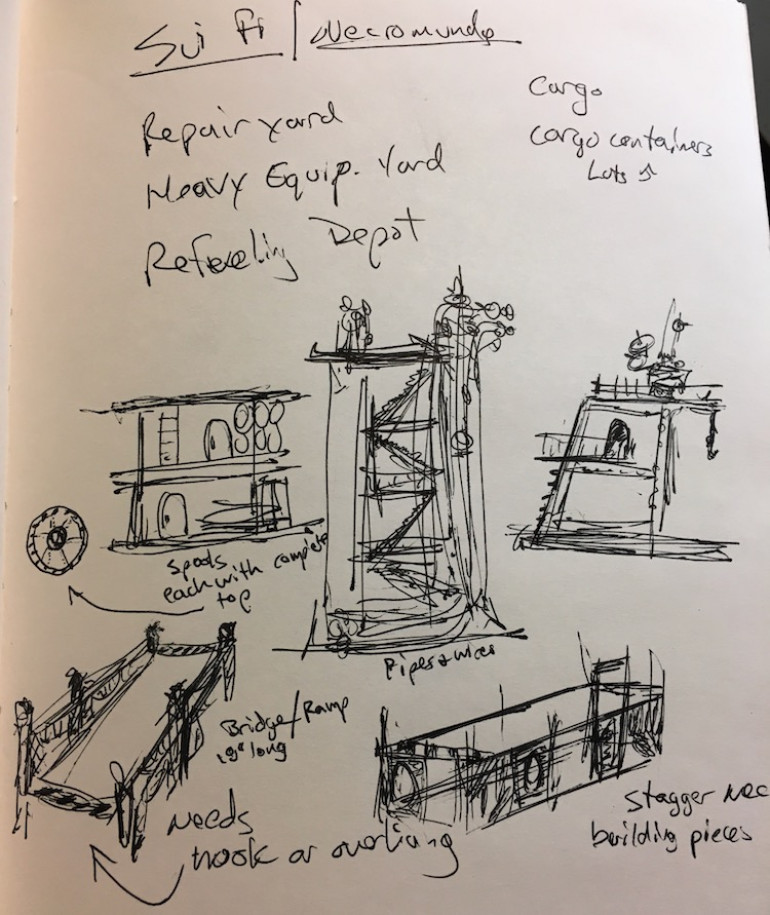 Sci fi / Necromunda
Repair yard
Heavy Equip. Yard
Refueling Depot
Cargo
Cargo containers
Lots
Spools
each with complete
top
Pipes & wires
Bridge/Ramp
long
Needs
hook or overhang
Stagger Nec
building pieces